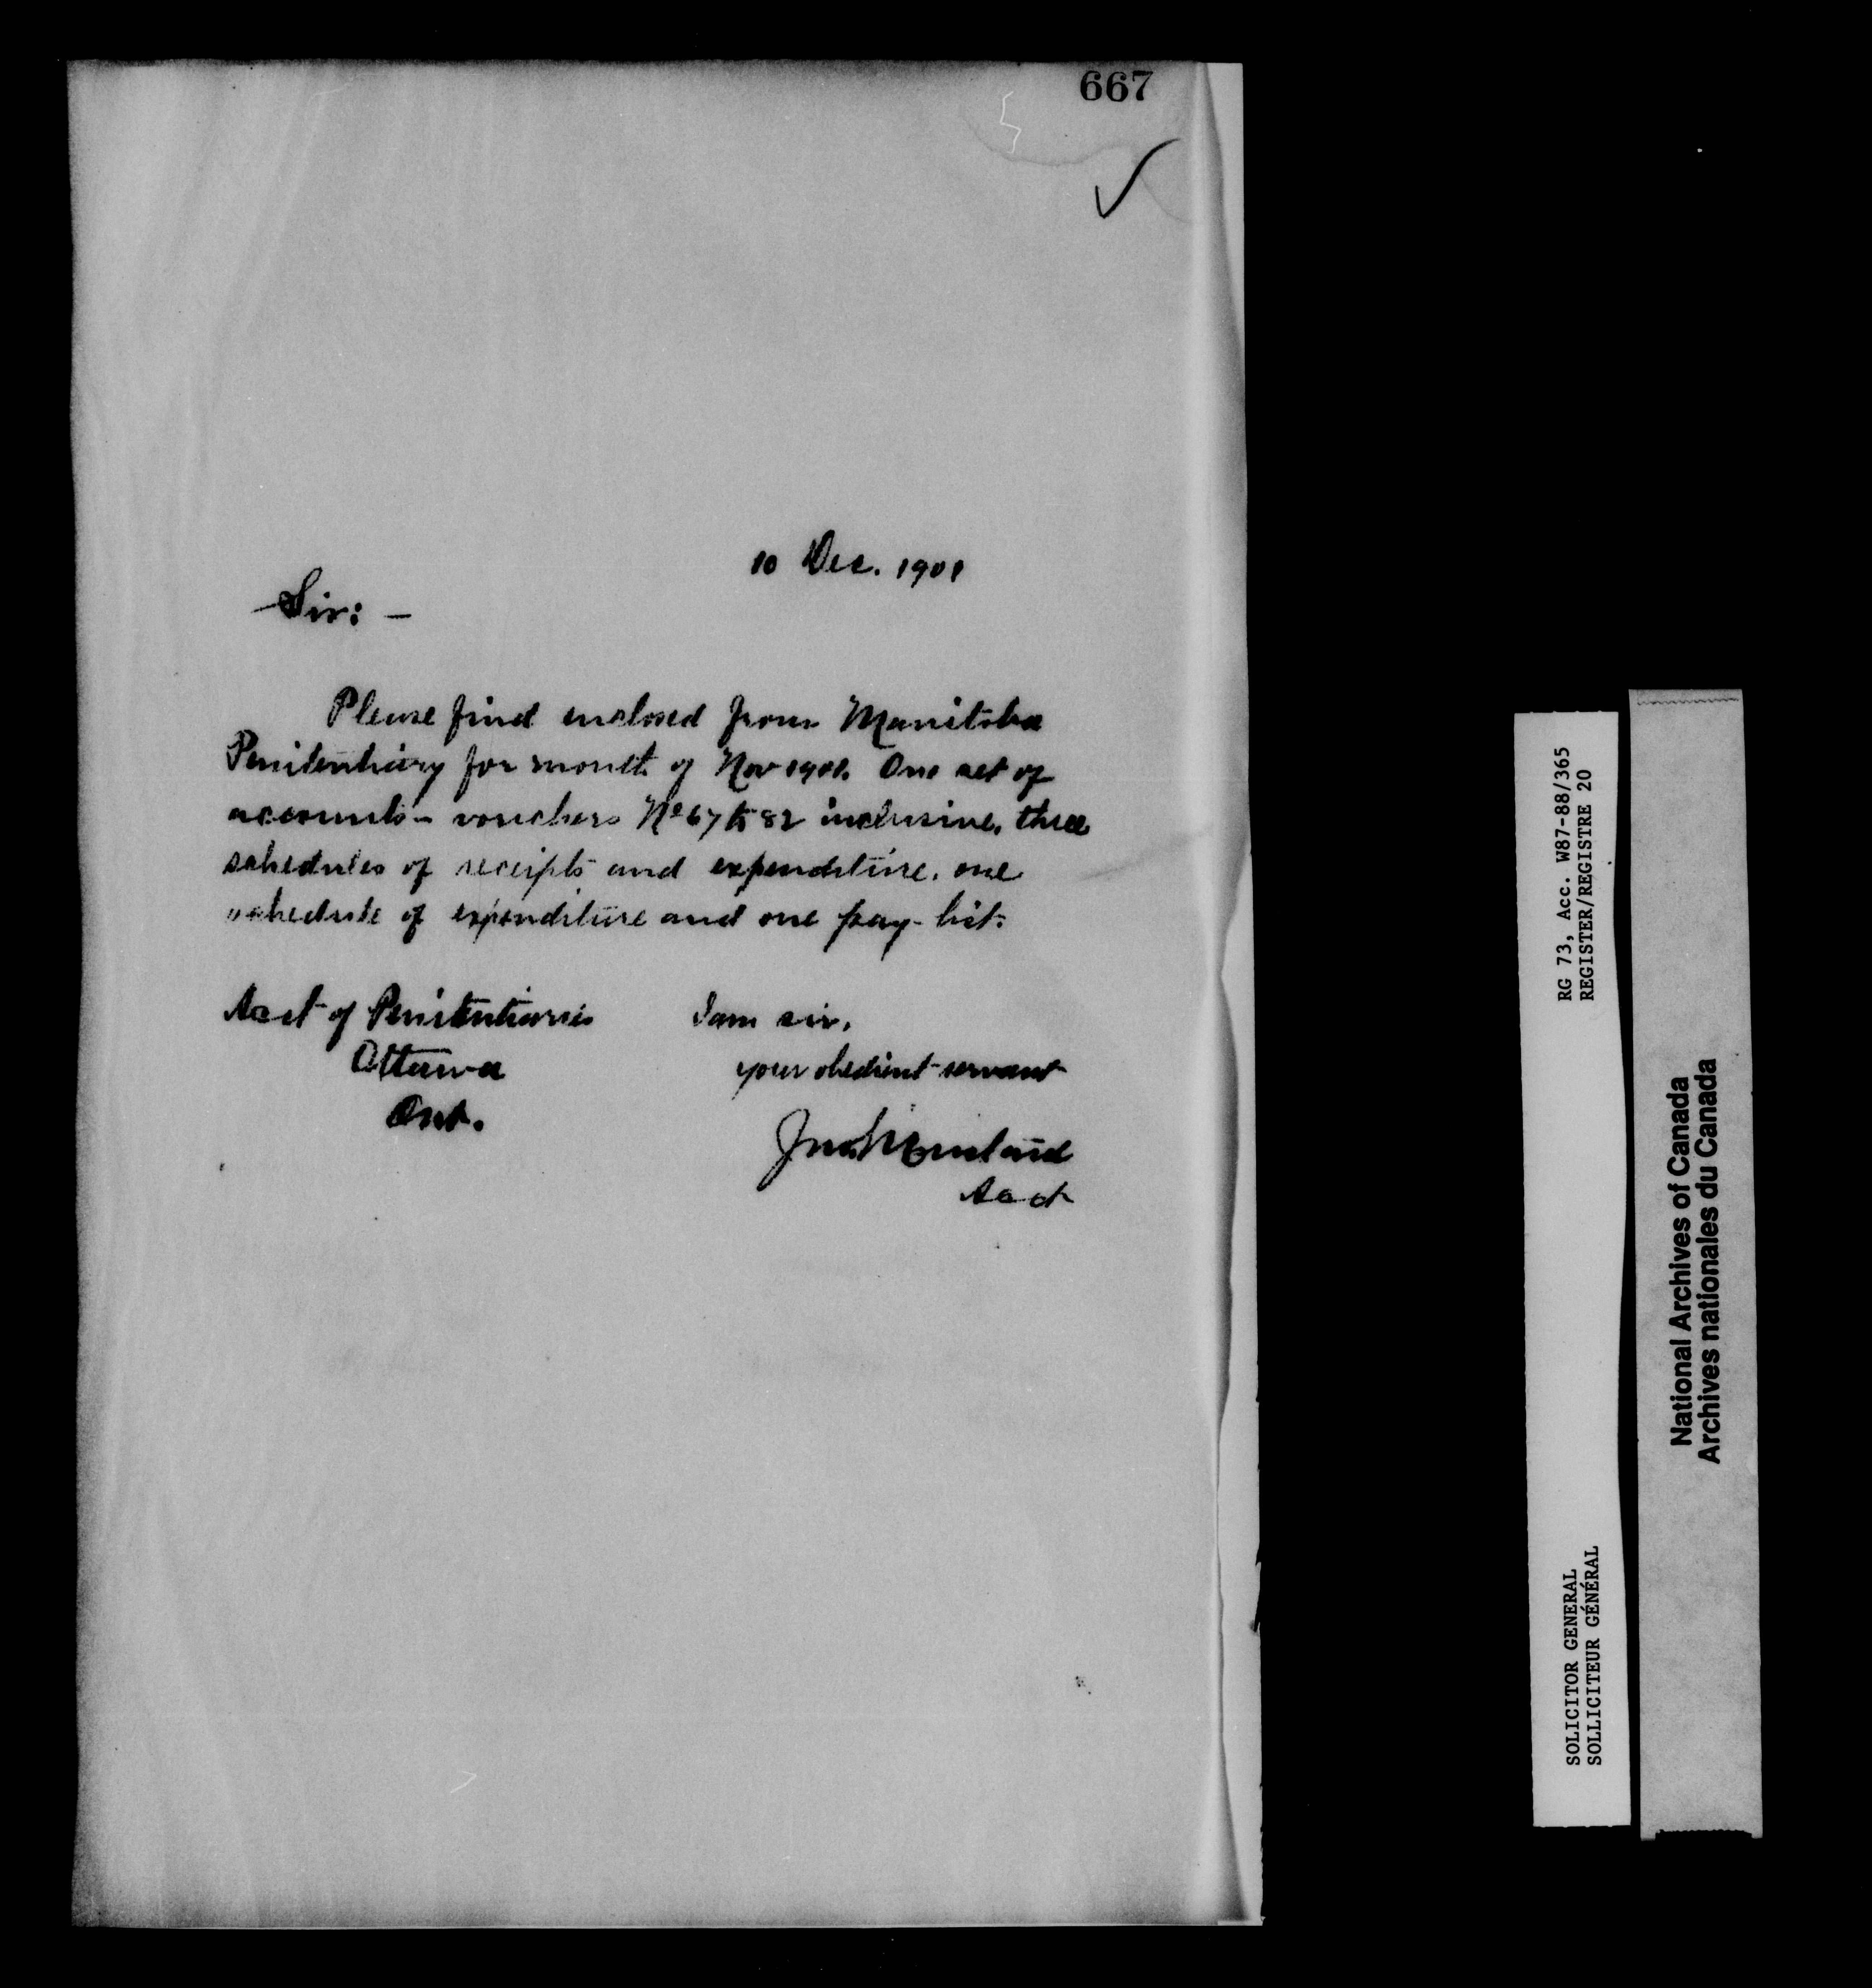 667
10 Dec. 1901
Sir: -
Please find enclosed from Manitoba
Penitentiary for month of Nov 1901. One set of
accounts - vouchers No 67 to 82 inclusive, three
schedules of receipts and expenditure, one
schedule of expenditure and one pay-list.
Acct of Penitentiaries
Ottawa
Ont.
I am sir,
your obedient servant
Acct
RG 73, Acc. W87-88/365
REGISTER/REGISTRE 20
SOLICITOR GENERAL
SOLLICITEUR GÉNÉRAL
National Archives of Canada
Archives nationales du Canada